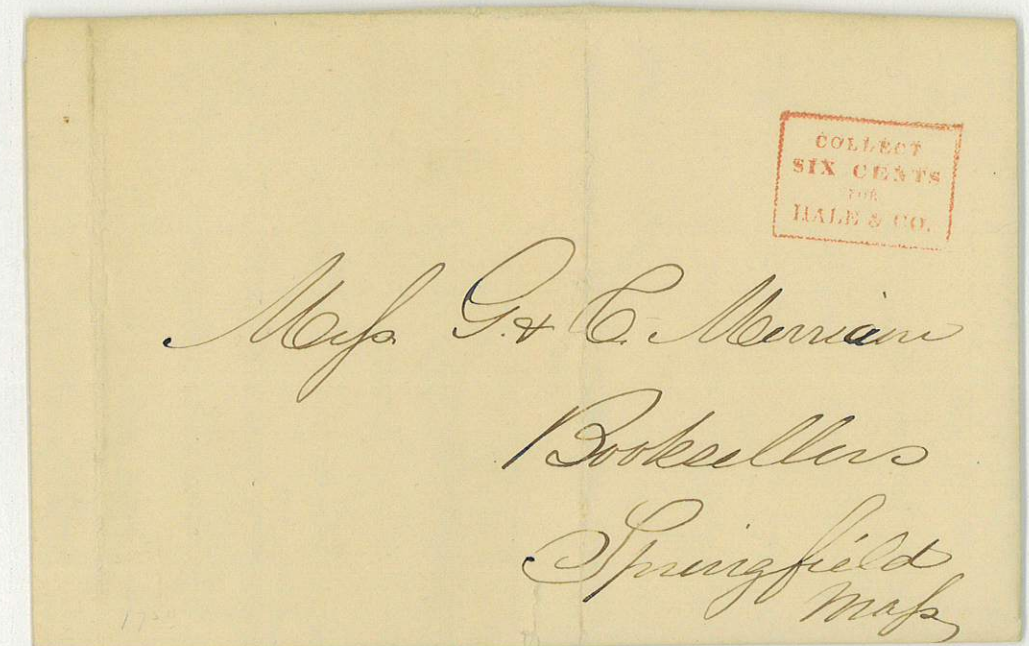 COLLECT
SIX CENTS
FOR
HALE & CO.
Mess G. & C. Merriam
Booksellers
Springfield
Mass